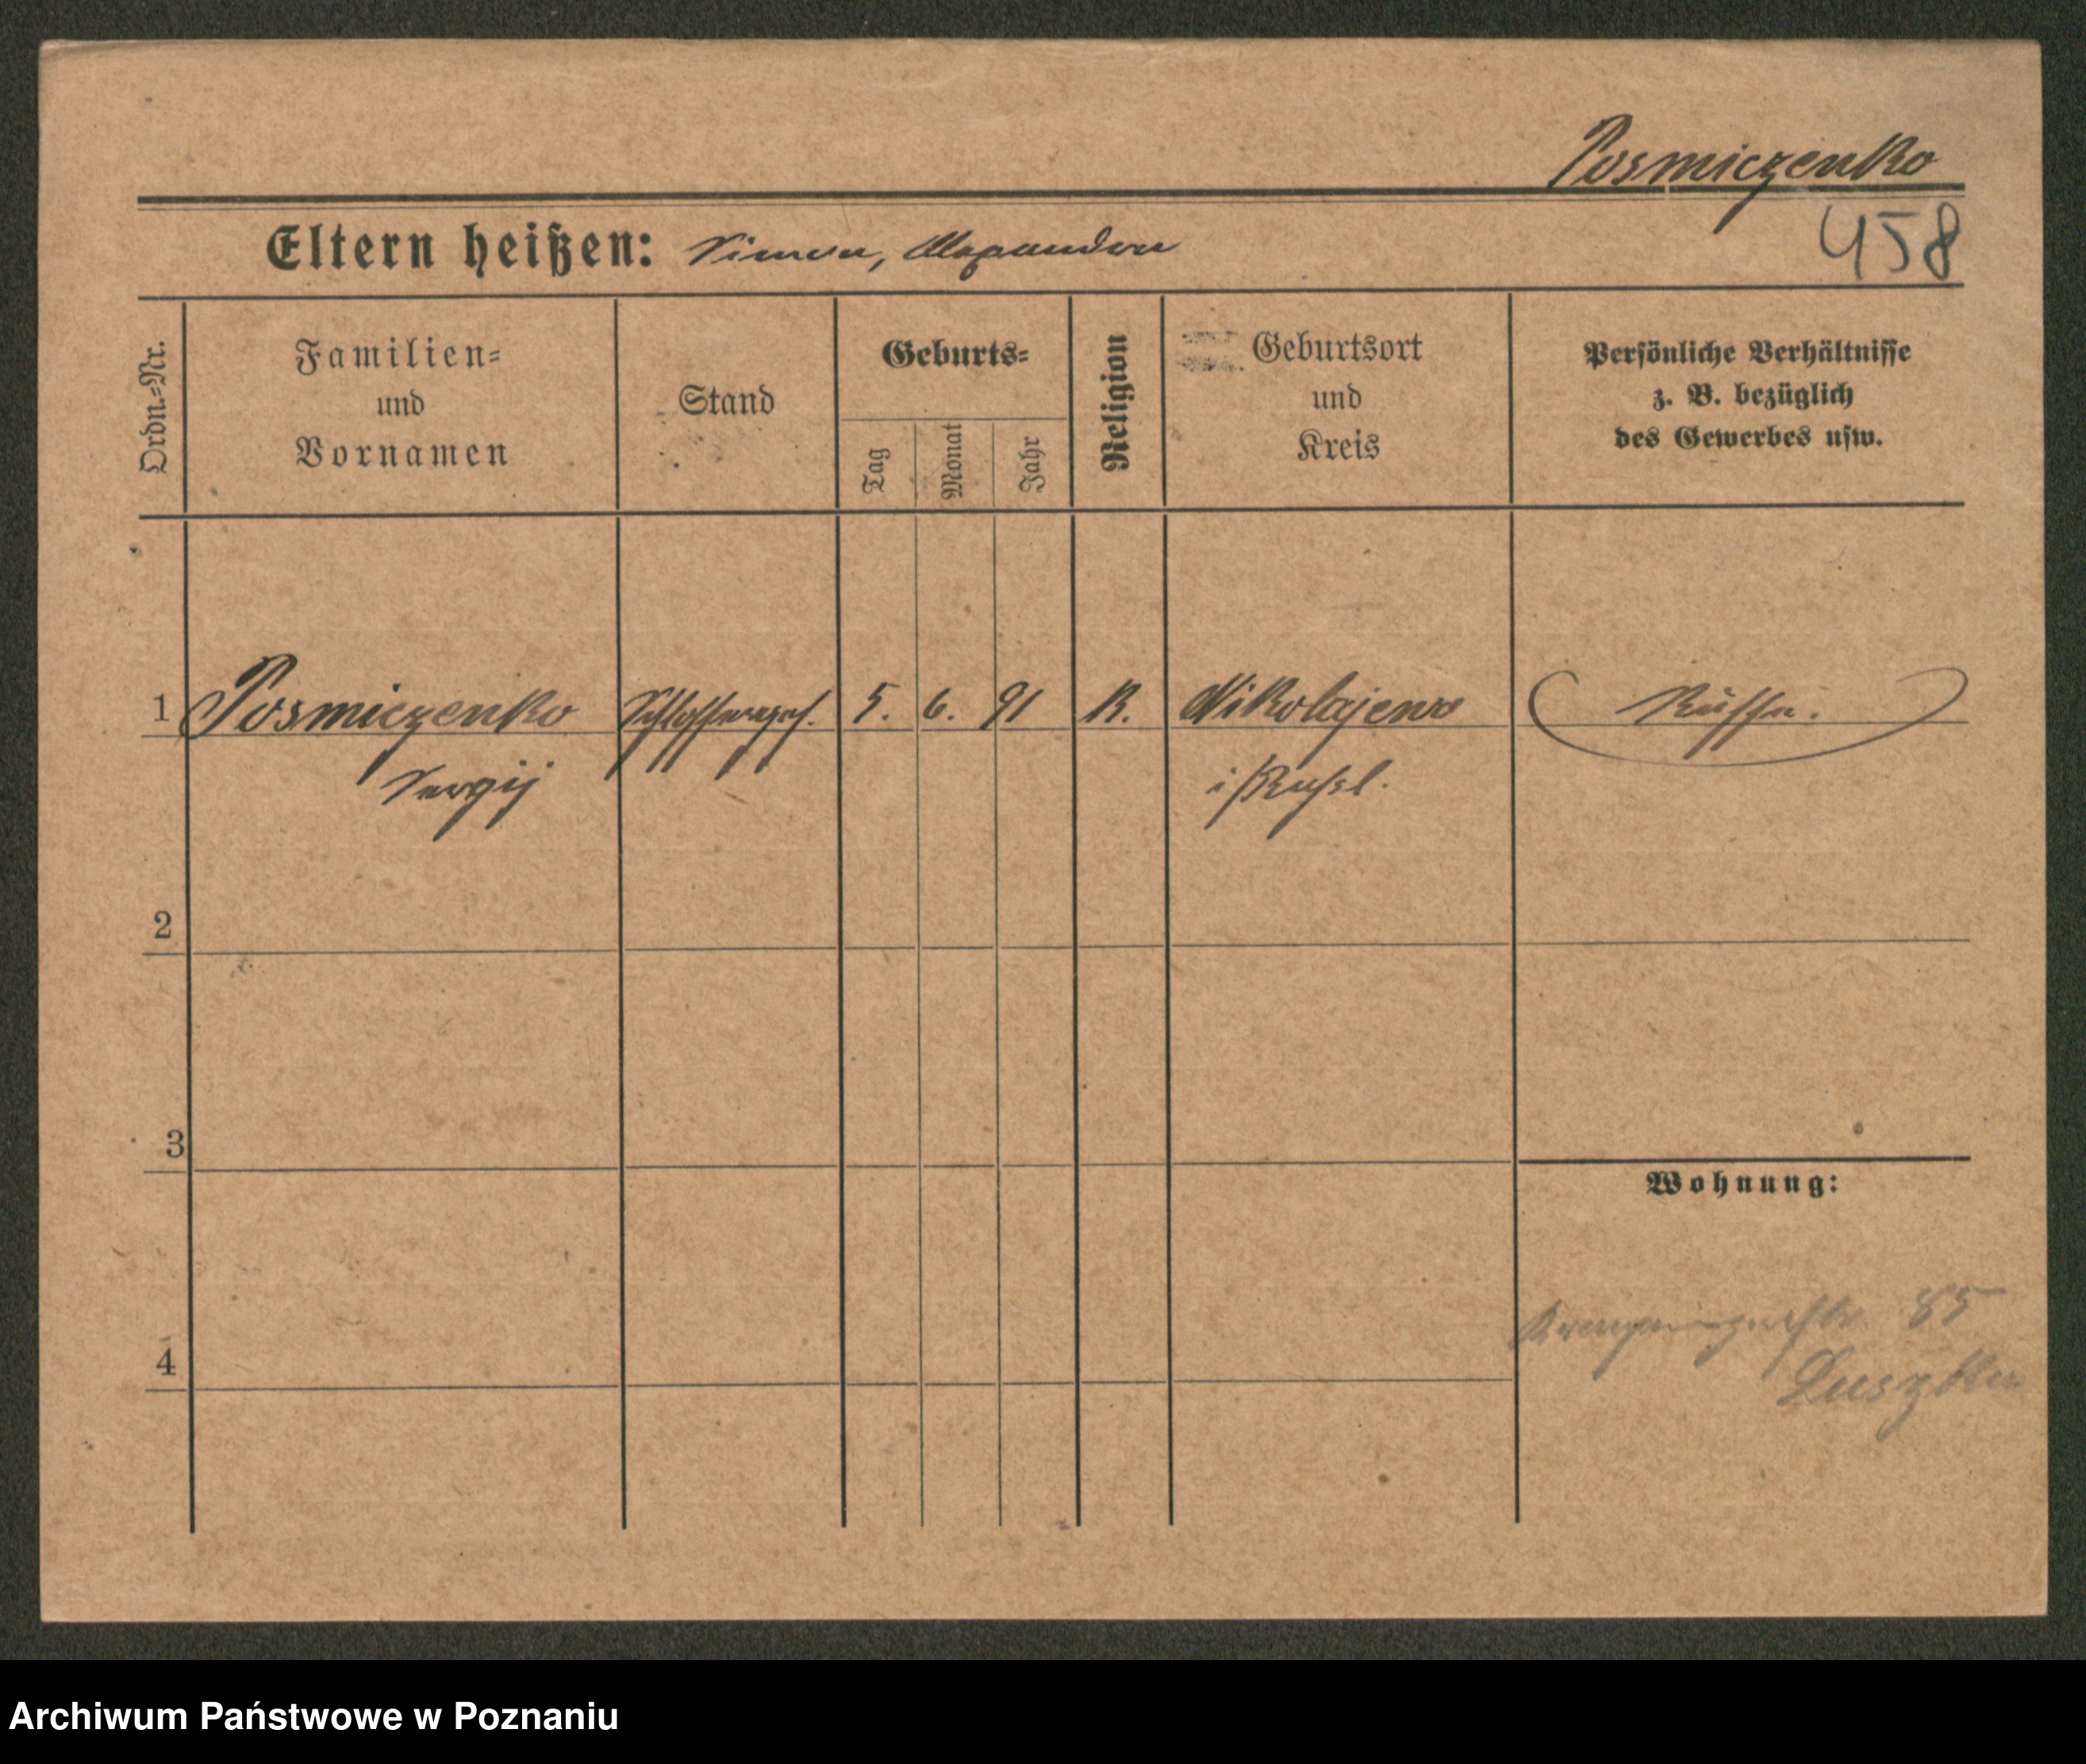 Posmiczenko
Eltern heißen: Simon, Alexandra
458
Ordn.=Nr.
Familien=
und
Vornamen
Stand
Geburts=
Tag
Monat
Jahr
Religion
Geburtsort
und
Kreis
Persönliche Verhältnisse
z. B. bezüglich
des Gewerbes usw.
1 Posmiczenko Schlosserges. 5. 6. 91 R. Nikolajewo Russe.
Sergij i/Russl.
2
3
Wohnung:
85
4
Archiwum Państwowe w Poznaniu